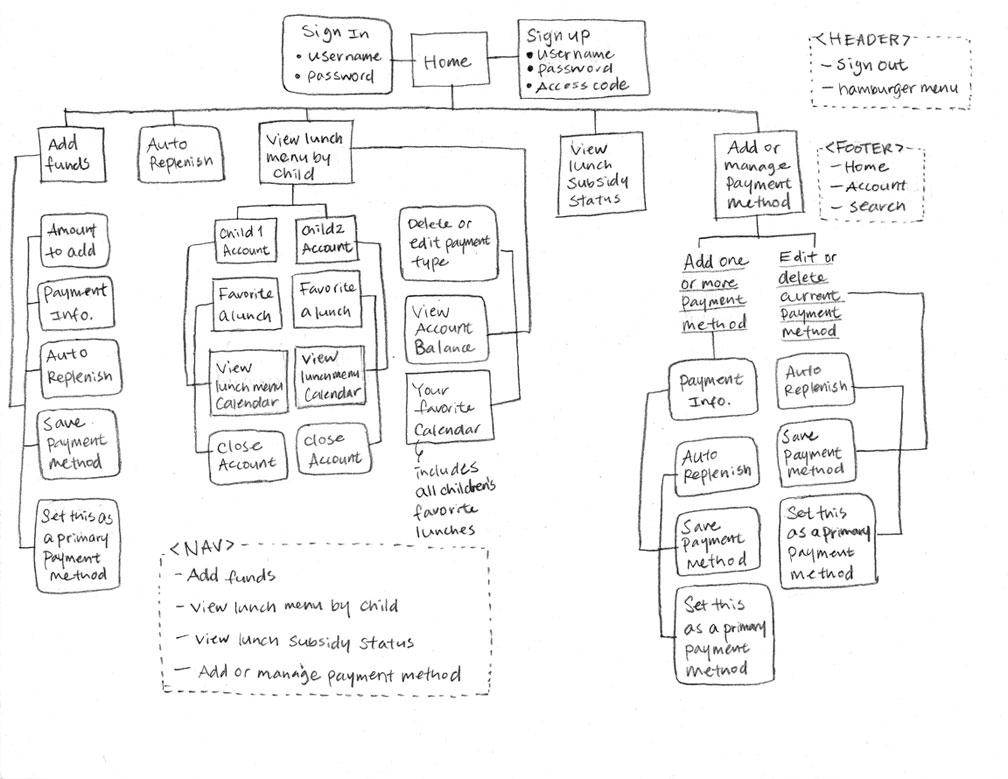 Sign In
• username
• password
Home
Sign up
• username
• password
• Access code
<HEADER>
- Sign out
- hamburger menu
Add
funds
Auto
Replenish
View lunch
menu by
child
View
lunch
subsidy
status
Add or
manage
payment
method
<FOOTER>
- Home
- Account
- search
Amount
to add
Payment
Info.
Auto
Replenish
Save
payment
method
Set this as
a primary
payment
method
Child 1
Account
Child 2
Account
Favorite
a lunch
Favorite
a lunch
View
lunch menu
Calendar
View
lunch menu
Calendar
Close
Account
Close
Account
Delete or
edit payment
type
View
Account
Balance
Your
favorite
Calendar
includes
all children's
favorite
lunches
Add one
or more
payment
method
Edit or
delete
current
payment
method
Payment
Info.
Auto
Replenish
Save
Payment
method
Set this
as a primary
payment
method
Auto
Replenish
Save
payment
method
Set this
as a primary
payment
method
<NAV>
- Add funds
- View lunch menu by child
- View lunch subsidy status
- Add or manage payment method